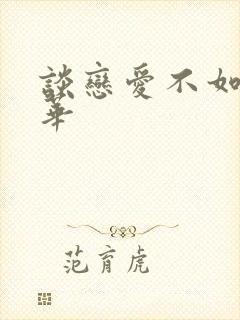 談戀愛不如
華
范育虎